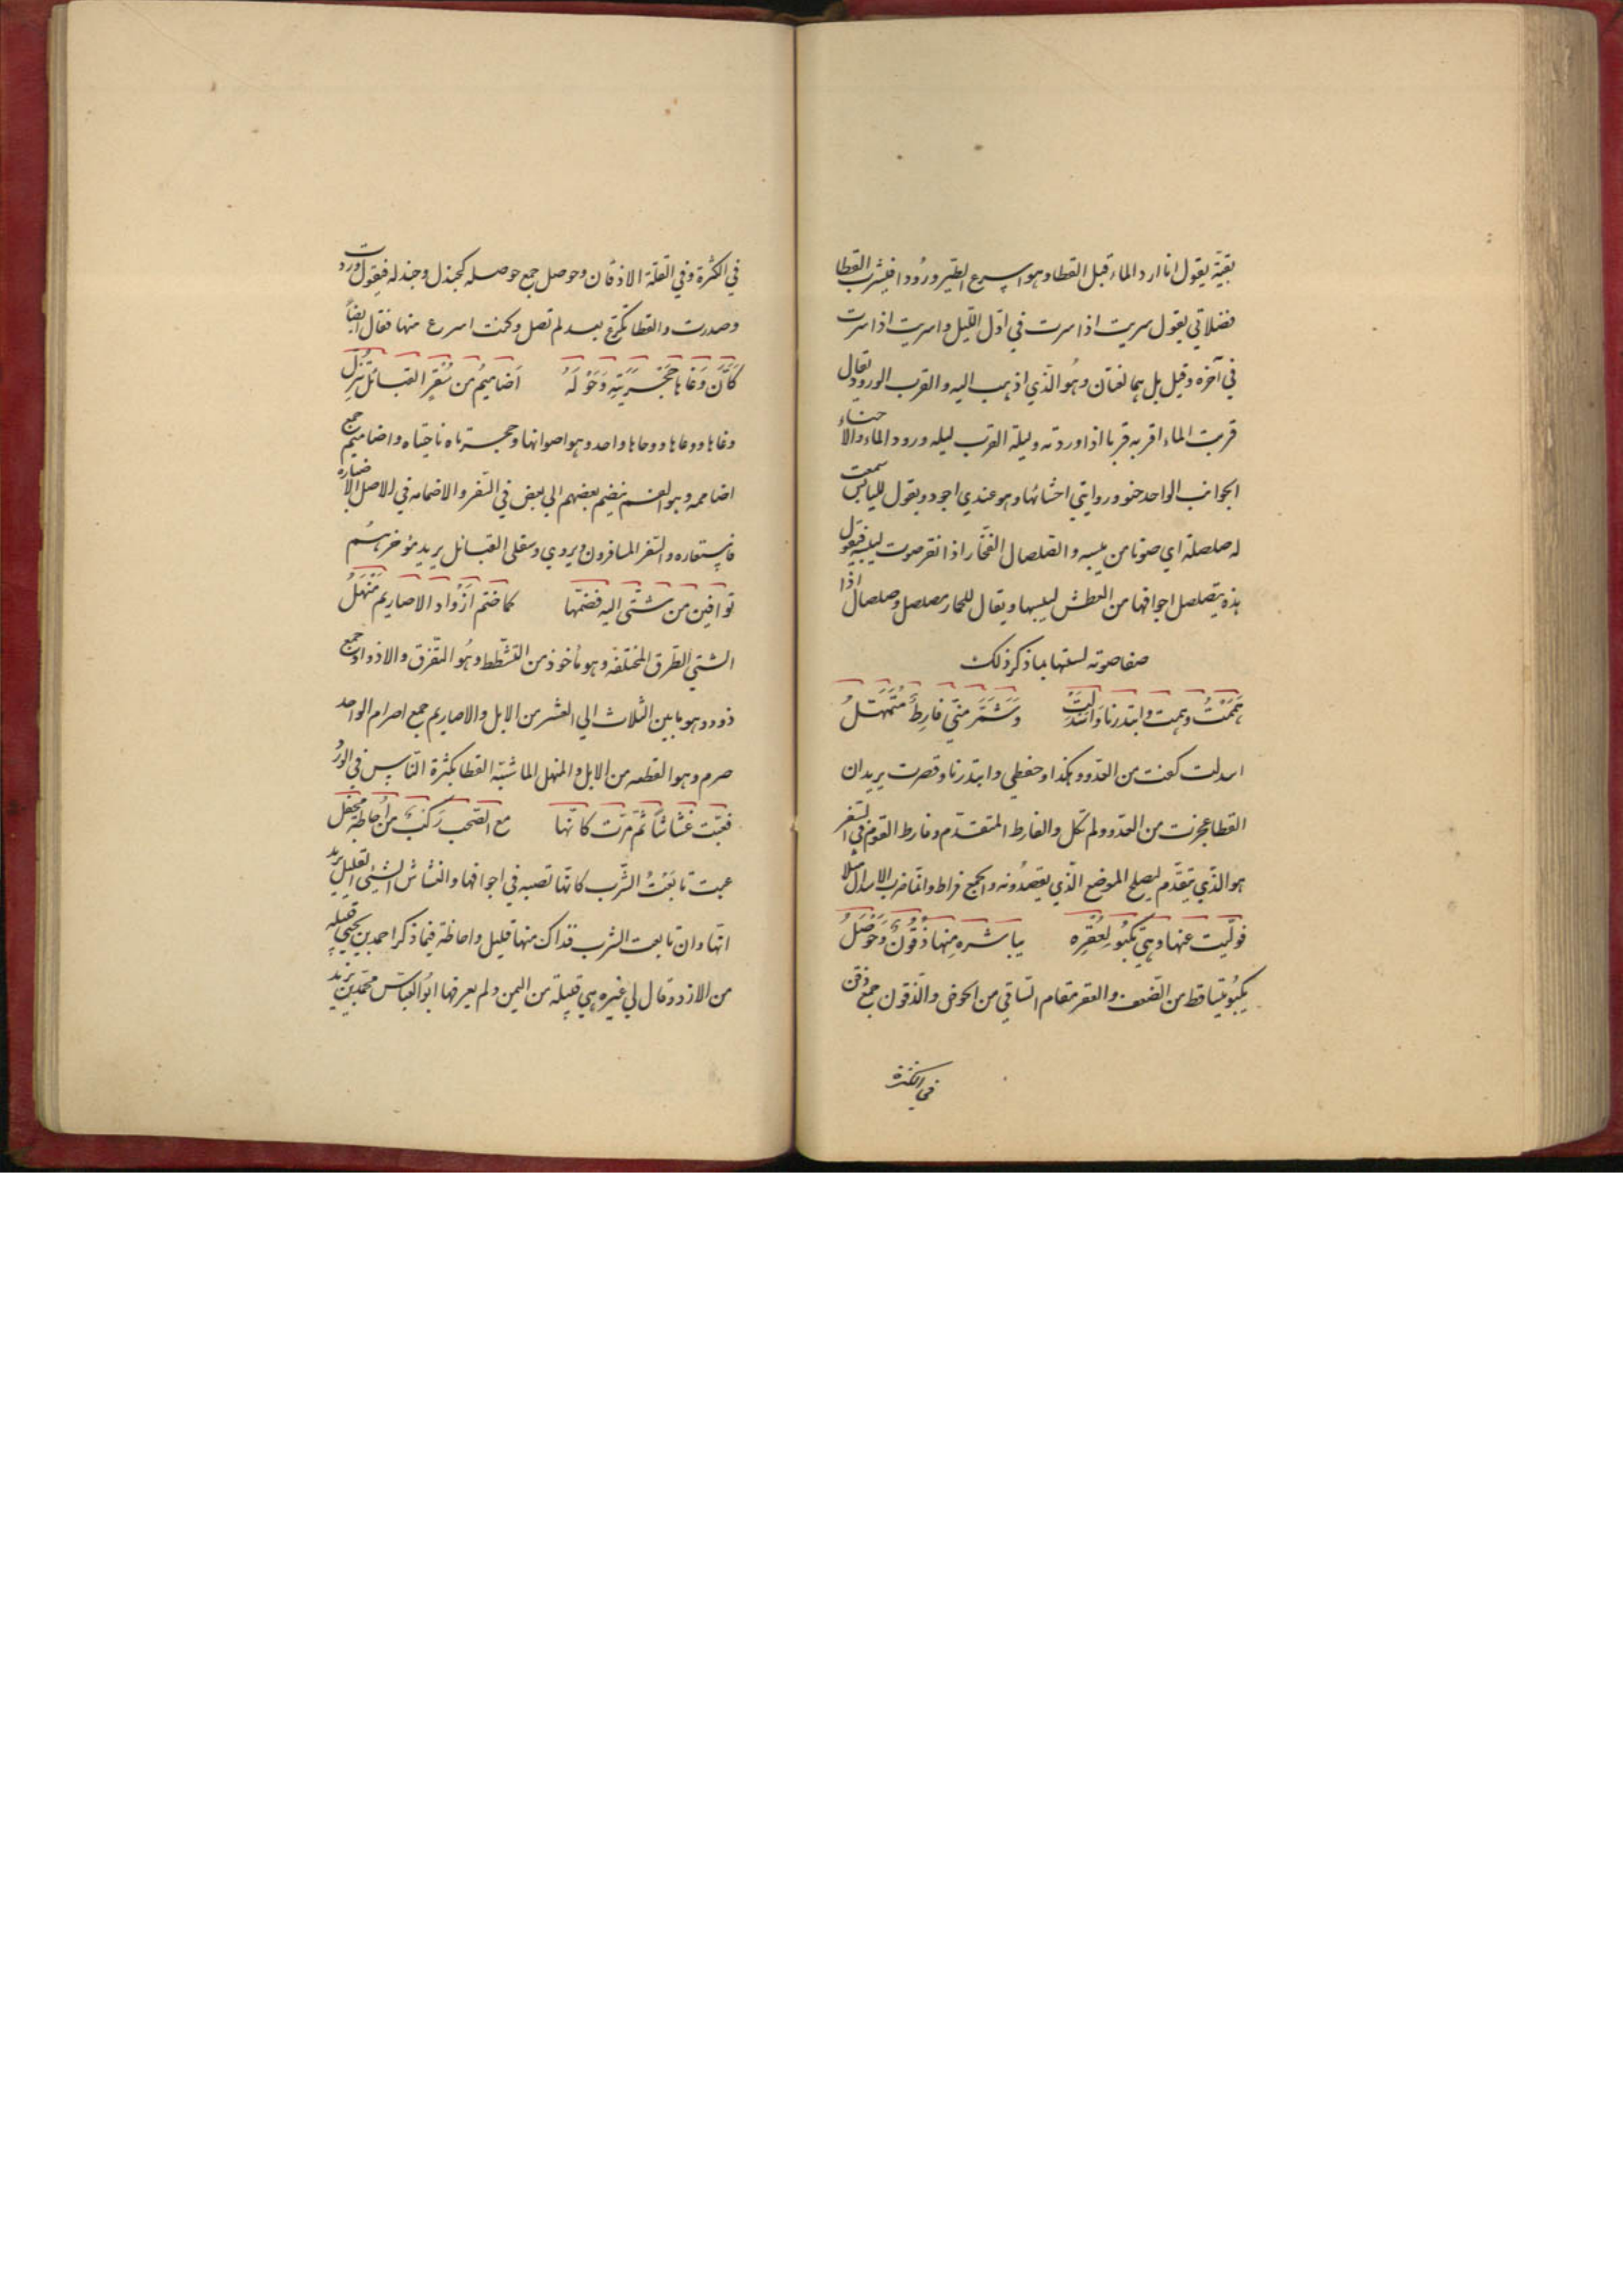 بقيّة يقول انا ارد الماء قبل القطا وهو اسرع الطير ورودا فيشرب القطا
فضلاتي يقول سريت اذا سرت في اوّل الليل واسريت اذا سرت
في آخره وقيل بل هما لغتان وهُو الّذي اذهب اليه والقرب الورود يقال
قربت الماء اقربه قربا اذا وردته وليلة القرب ليله ورود الماء والاحناء
الجوانب الواحد حنو وروايتي احشائها وهو عندي اجود ويقول لليابس سمعت
له صلصلة اي صوتا من يبسه والصلصال الفخّار اذا نقر صوت ليبسه فيقول
هذه يتصلصل اجوافها من العطش ليبسها ويقال للحمار مصلصل وصلصال اذا
صفا صوته لسعتها ما ذكر ذلك
هَمَمْتُ وهمت وابتدرنا وَاسْدَلَتْ وَشَمَّرَ منّي فارِطٌ مُتَمَهِّلُ
اسدلت كفت من العدو وهكذا وحفظي وابتدرنا وقصرت يريد ان
القطا عجزت من العدو ولم تكل والفارط المتقدّم وفارط القوم في السفر
هو الّذي يتقدّم ليصلح الموضع الّذي يقصدُونه والجمع فراط وانما ضرب الاسدال مثلا
فولّيت عنها وهي تكبُو لِعُقْرِه يباشره مِنها ذُقُونٌ وَحَوْصَلُ
يكبُو يتساقط من الضعف والعقر مقام الساقي من الحوض والذقون جمع ذقن
في الكثرة
في الكثرة وفي القلّة الاذقان وحوصل جمع حوصله كجندل وجندله فيقول وردت
وصدرت والقطا تكرع بعد لم تصل وكنت اسرع منها فقال ايضاً
كَأَنَّ وَغَاها حَجْرَتَيْهِ وَحَوْلَهُ اَضاميمُ من سُفْرِ القبائل نُزَّلُ
وغاها ووعاها ووحاها واحد وهو اصواتها وحجرتاه ناحيتاه واضاميم جمع
اضمامه وهو القوم ينضم بعضهم الى بعض في السفر والاضمامه في الاصل الاضباره
فاستعاره والسّفر المسافرون ويروي وسفلى القبائل يريد مؤخرهُم
توافين من شتّى اليه فضمّها كما ضمّ ازْوادَ الاصاريم مَنْهَلُ
الشتي الطرق المختلفه وهو مأخوذ من التشطط وهُو التفرق والاذواد جمع
ذود وهو ما بين الثلاث الى العشر من الابل والاصاريم جمع اصرام الواحد
صرم وهو القطعه من الابل والمنهل الما شبّه القطا بكثرة الناس في الورُد
فعبّت غشاشاً ثم مرّت كانّها مع الصّبح رَكبٌ من اُحاظة مجفل
عبت تابَعْتُ الشّرب كانّها تصبه في اجوافها والغشاش الشيئي القليل يريد
انّها وان تابعت الشرب فذاك منها قليل واحاظة فيما ذكر احمد بن يحيي قبيله
من الازد وقال لي غيره هي قبيلة من اليمن ولم يعرفها ابُو العبّاس محمّد بن يزيد